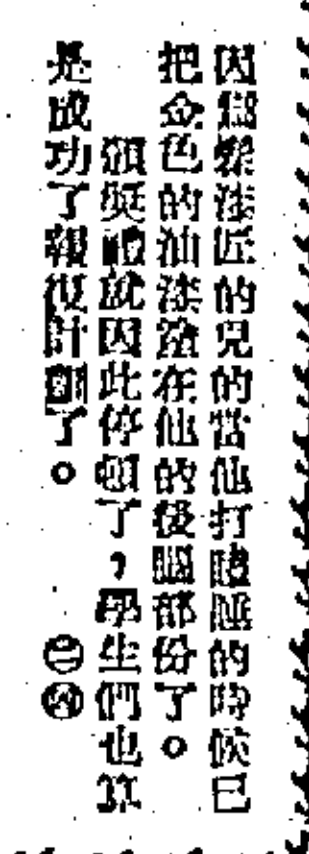 因爲漆匠的兒的當他打瞌睡的時候已
把金色的油漆塗在他的後腦部份了。
頒奬禮就因此停頓了，學生們也算
是成功了報復計劃了。